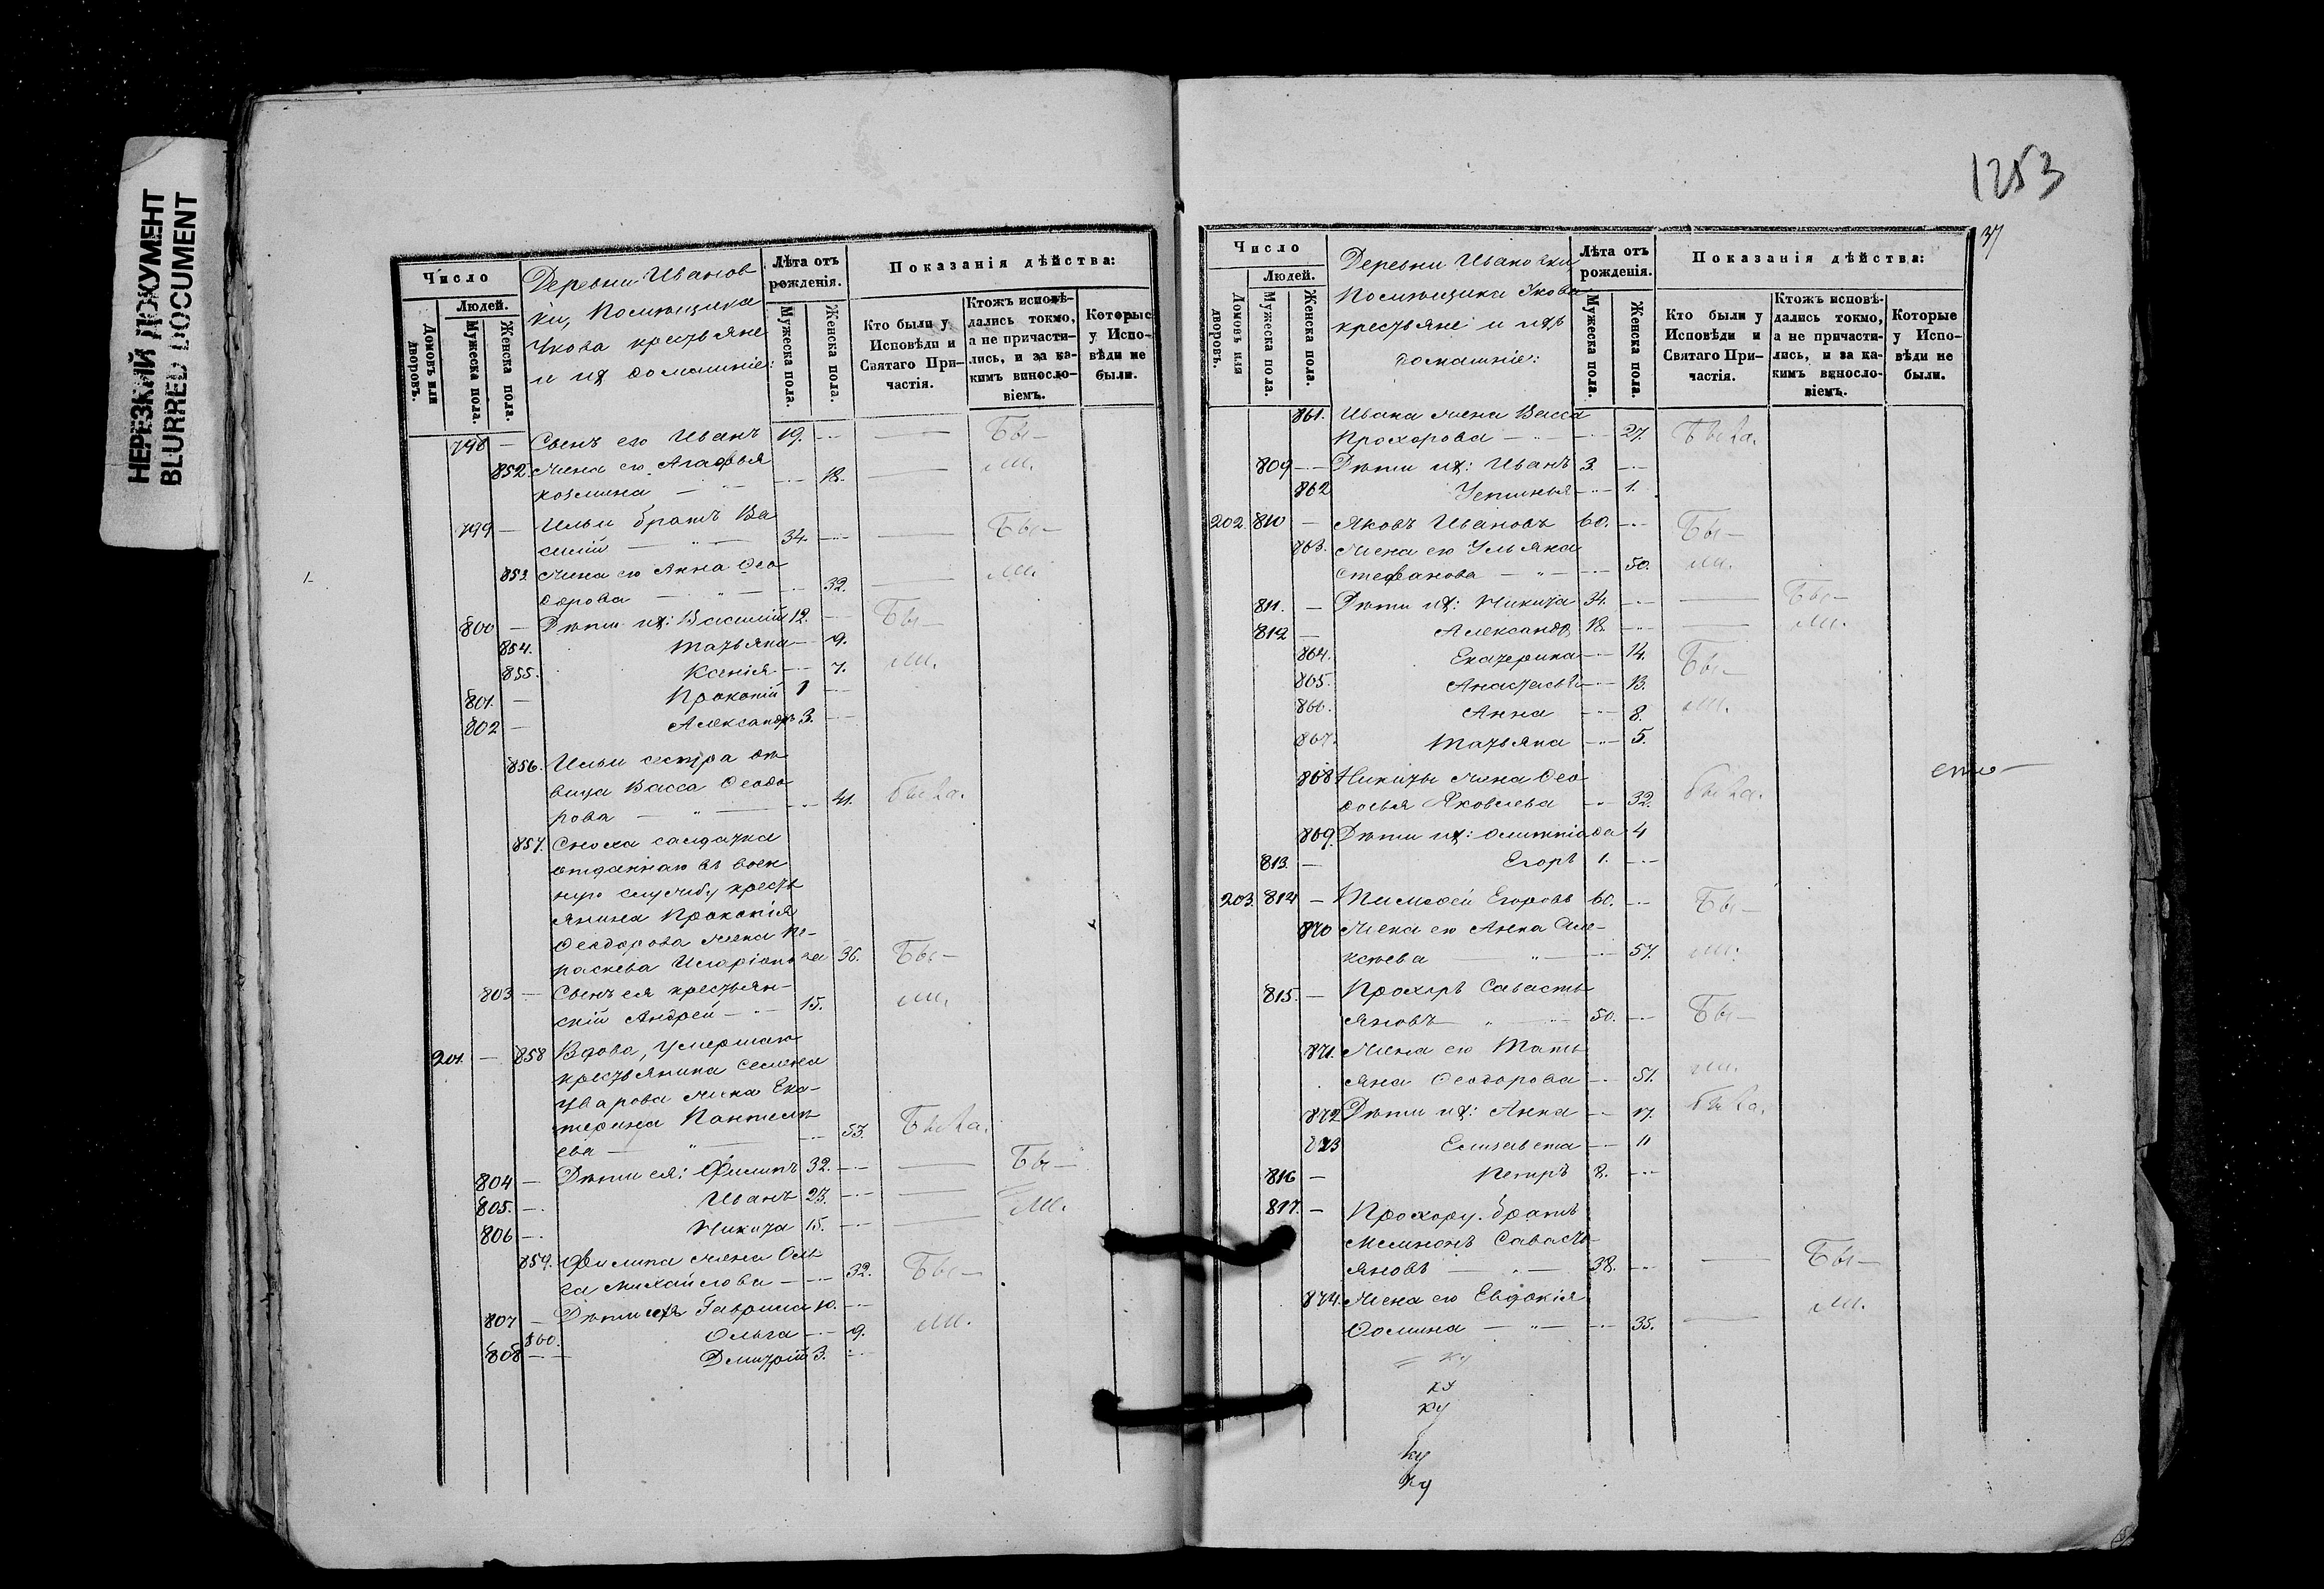 НЕРЕЗКИЙ ДОКУМЕНТ
BLURRED DOCUMENT
Число
Людей.
Домовъ или дворовъ.
Мужеска пола.
Женска пола.
Деревни Иванов
ки, Помѣщика
крестьяне
и их домашніе:
Лѣта отъ рожденія.
Мужеска пола.
Женска пола.
Показанія дѣйства:
Кто были у Исповѣди и Святаго Причастія.
Ктожъ исповѣдались токмо, а не причастились, и за какимъ винословіемъ.
Которые у Исповѣди не были.
798 — Сынъ его Иванъ 19. Бы—
852. Жена его Агафья ли.
козмина 18.
799 — Ильи братъ Ва
силій 34. Бы—
853 Жена его Анна Ѳео
дорова 32. ли.
800 — Дѣти их: Василій 12. Бы—
854. Татьяна 9.
855. Ксенія 7. ли.
801. — Прокопій 1
802 — Александръ 3.
856. Ильи сестра дѣ
вица Васса Ѳеодо
рова 41. была.
857. Сноха салдатка
отданнаго въ воен
ную службу кресть
янина Прокопія
Ѳеодорова жена Пе-
раскева 36. Бы—
803 — Сынъ ея крестьян-
скій Андрей 15. ли.
201. — 858 Вдова, умершаго
крестьянина Семена
Уварова жена Ека-
терина Пантелѣ
ева 53. Была.
804 — Дѣти ея: Филипъ 32. Бы—
805. — Иванъ 23.
806 — Никита 15. ли.
859. Филипа жена Оль
га Михайлова 32. Бы—
807 — Дѣти ихъ Гаврила 10.
860. Ольга 9. ли.
808 — Дмитрій 3.
1253
37
Число
Людей.
Домовъ или дворовъ.
Мужеска пола.
Женска пола.
Деревни Ивановки
Помѣщика
крестьяне и ихъ
домашніе:
Лѣта отъ рожденія.
Мужеска пола.
Женска пола.
Показанія дѣйства:
Кто были у Исповѣди и Святаго Причастія.
Ктожъ исповѣдались токмо, а не причастились, и за какимъ винословіемъ.
Которые у Исповѣди не были.
861. Ивана жена Васса
Прохорова 27. Была.
809 — Дѣти их: Иванъ 3.
862 Устинья 1.
202 810 — Яковъ Ивановъ 60. Бы—
863. Жена его Ульяна
Стефанова 50. ли.
811. — Дѣти их: Никита 34. Бы—
812 — Александр 18. ли.
864. Екатерина 14. Бы—
865. Анастасья 13.
866. Анна 8. ли.
867. Татьяна 5.
868 Никиты жена Ѳео
досья Яковлева 32. была.
869. Дѣти их: Олимпіада 4
813. — Егоръ 1.
203. 814 — Тимоѳей Егоровъ 60. Бы—
870 Жена его Анна Але-
ксѣева 57. ли.
815. — Прохоръ Савасть
яновъ 50. Бы—
871. Жена его Тать
яна Ѳеодорова 51. ли.
872 Дѣти их: Анна 17. была.
873 Елизавета 11
816 — Петръ 8.
817. — Прохору братъ
Савасть
яновъ 38. Бы—
874. Жена его Евдокія
Ѳомина 35. ли.
ку
ку
ку
ку
ку